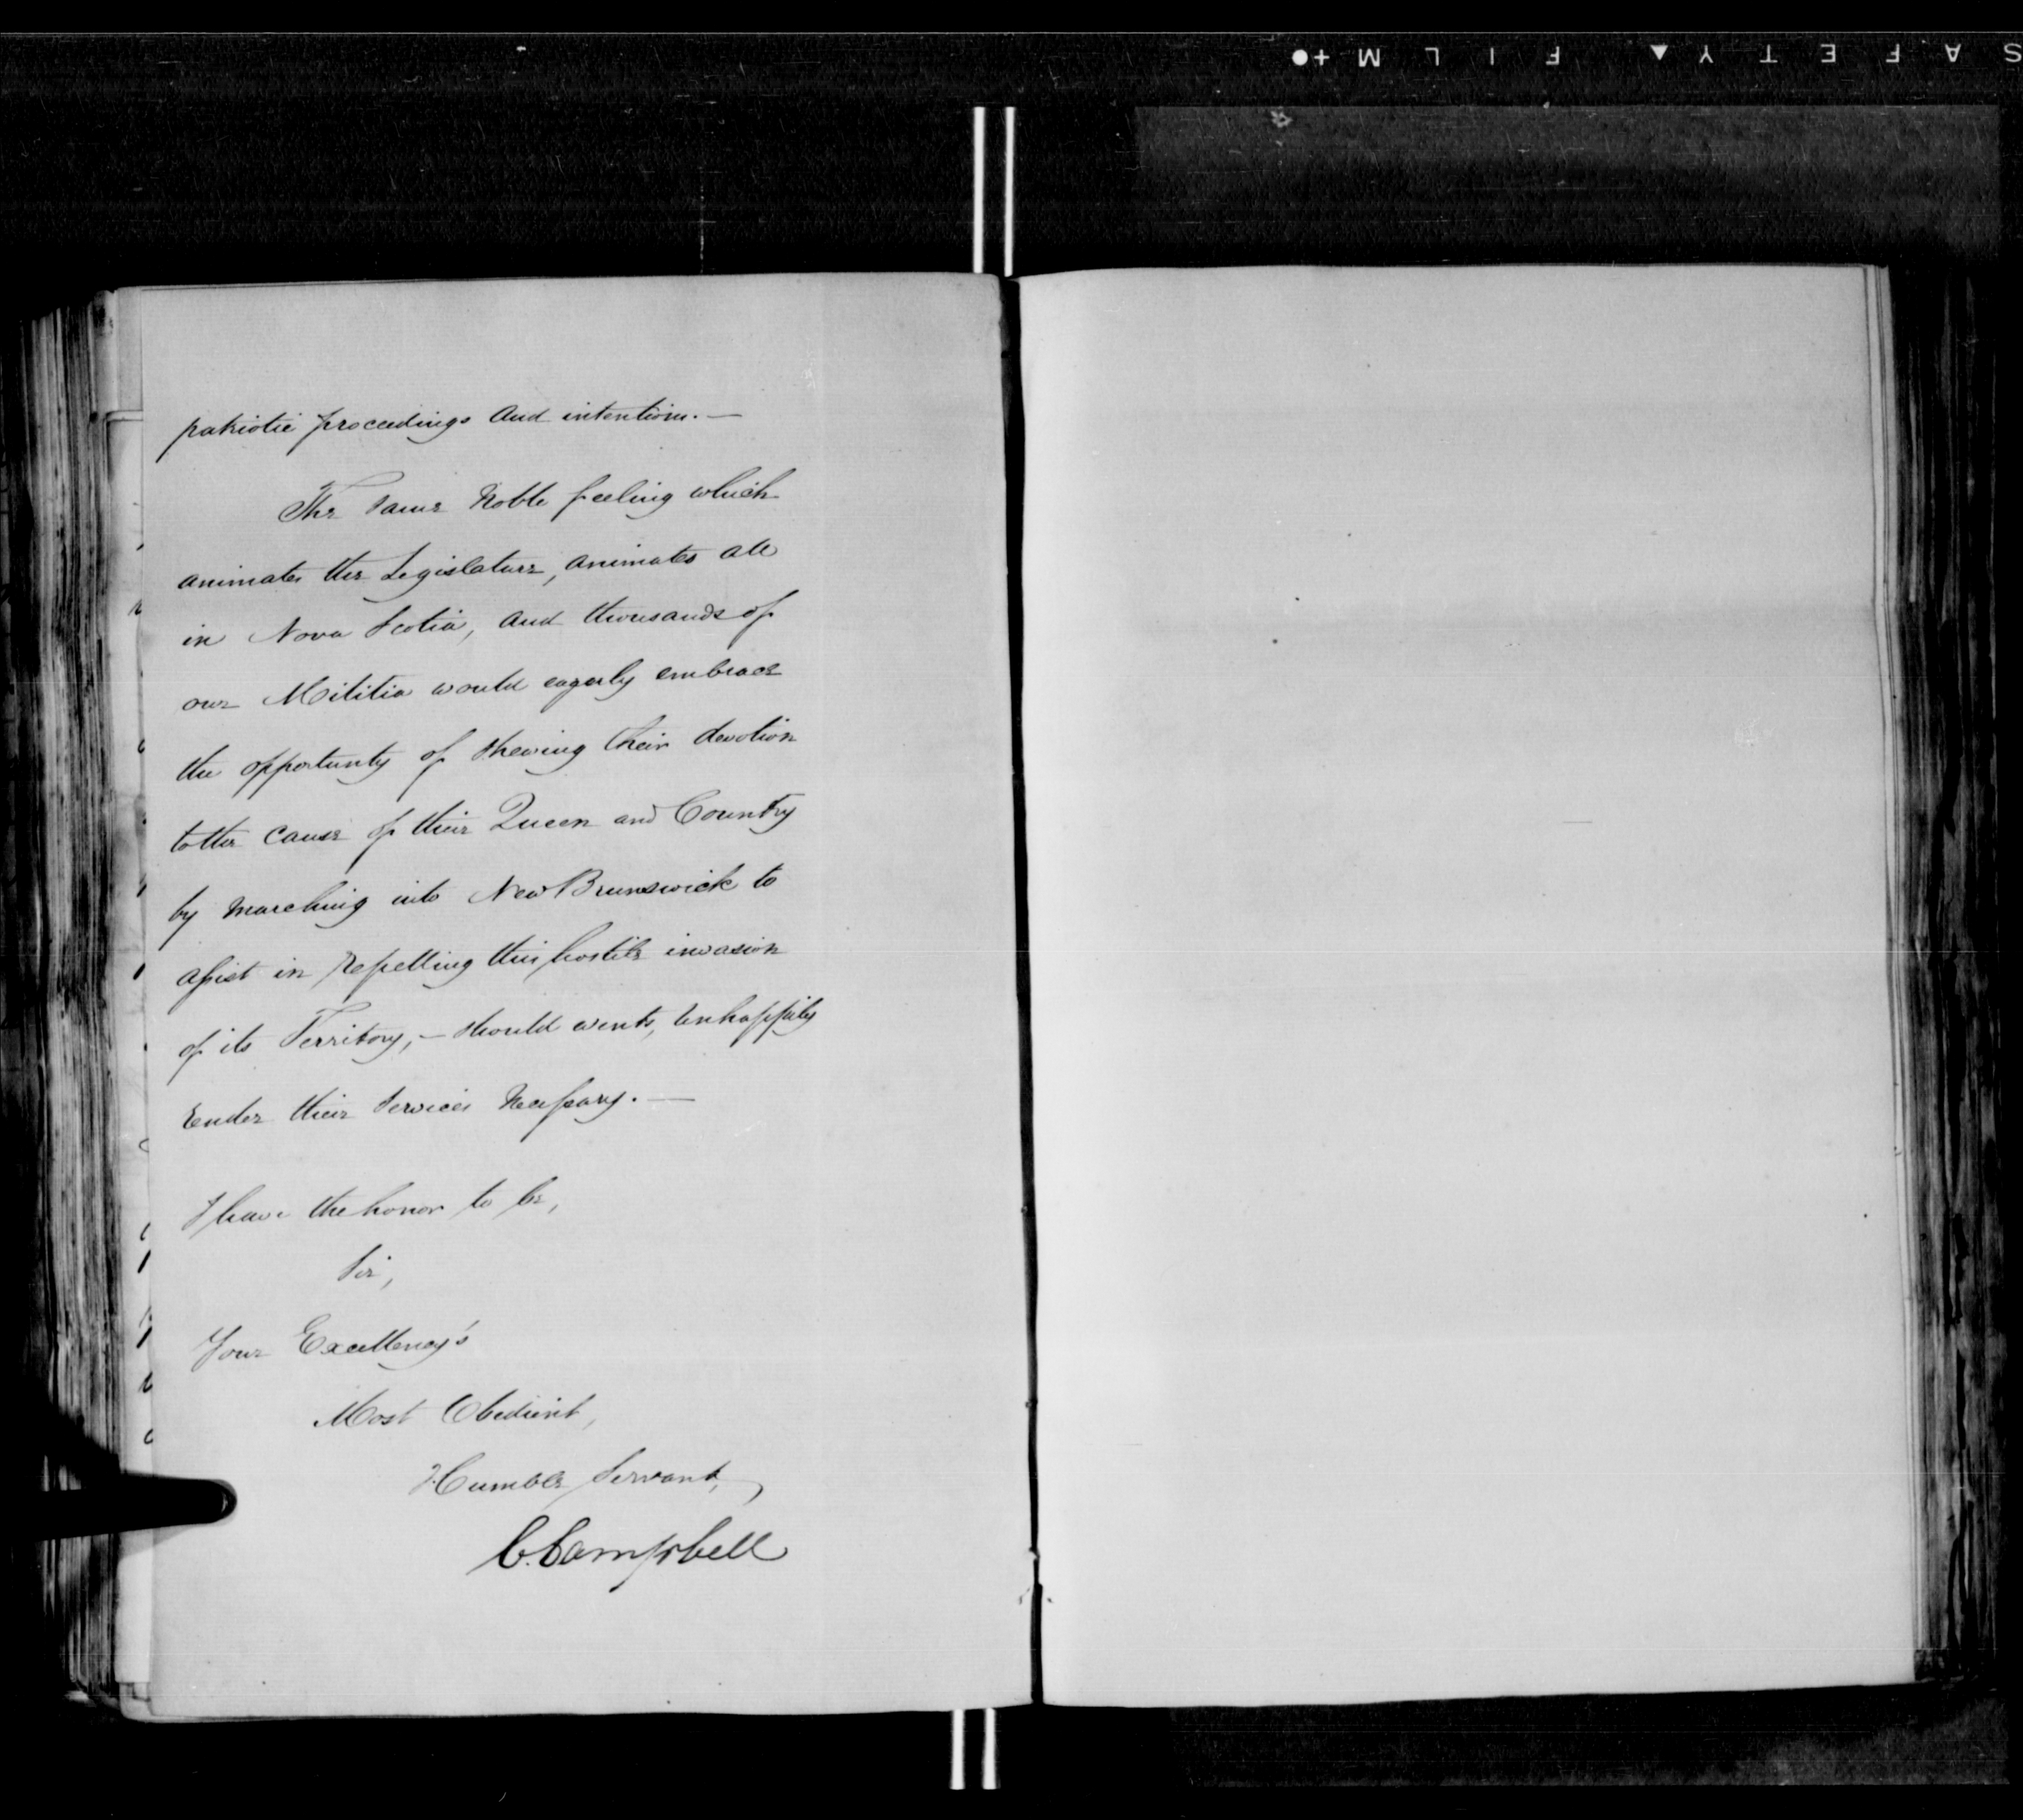 SAFETY ▲ FILM +●
patriotic proceedings and intentions. —
The same Noble feeling which
animates the Legislature, animates all
in Nova Scotia, and thousands of
our Militia would eagerly embrace
the opportunity of shewing their devotion
to the cause of their Queen and Country
by marching into New Brunswick to
assist in repelling this hostile invasion
of its Territory, — should events, unhappily
render their services necessary. —
I have the honor to be,
Sir,
Your Excellency's
Most Obedient,
Humble Servant,
C. Campbell